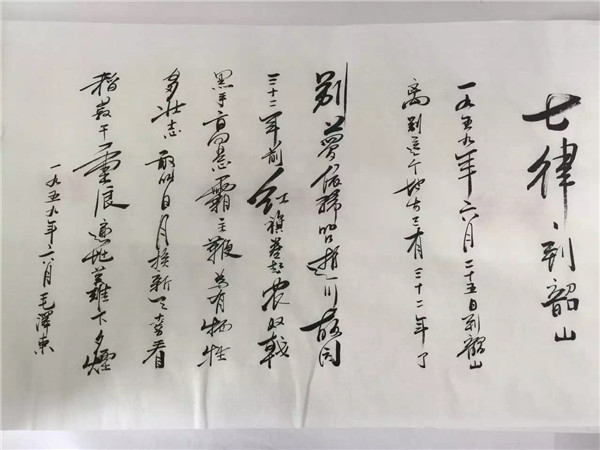 七律·到韶山
一九五九年六月二十五日到韶山
离别这个地方已有三十二年了
别夢依稀咒逝川故园
三十二年前红旗卷起农奴戟
黑手高悬霸主鞭为有牺牲
多壮志敢叫日月换新天喜看
稻菽千重浪遍地英雄下夕煙
一九五九年六月毛澤東